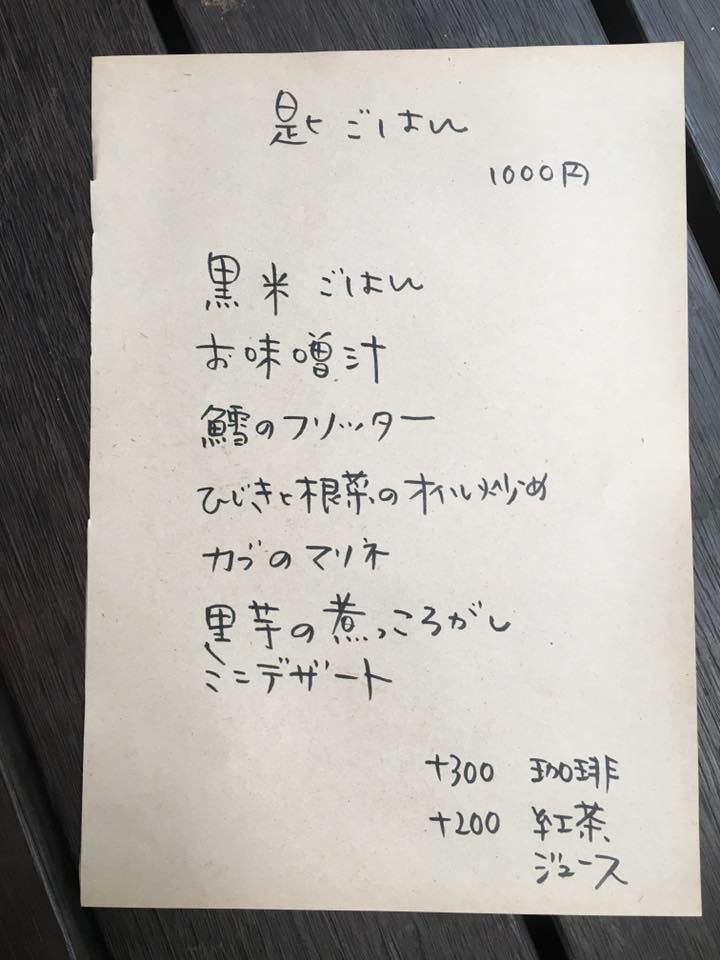 匙ごはん
1000円
黒米ごはん
お味噌汁
鱈のフリッター
ひじきと根菜のオイル炒め
カブのマリネ
里芋の煮っころがし
ミニデザート
+300 珈琲
+200 紅茶
ジュース